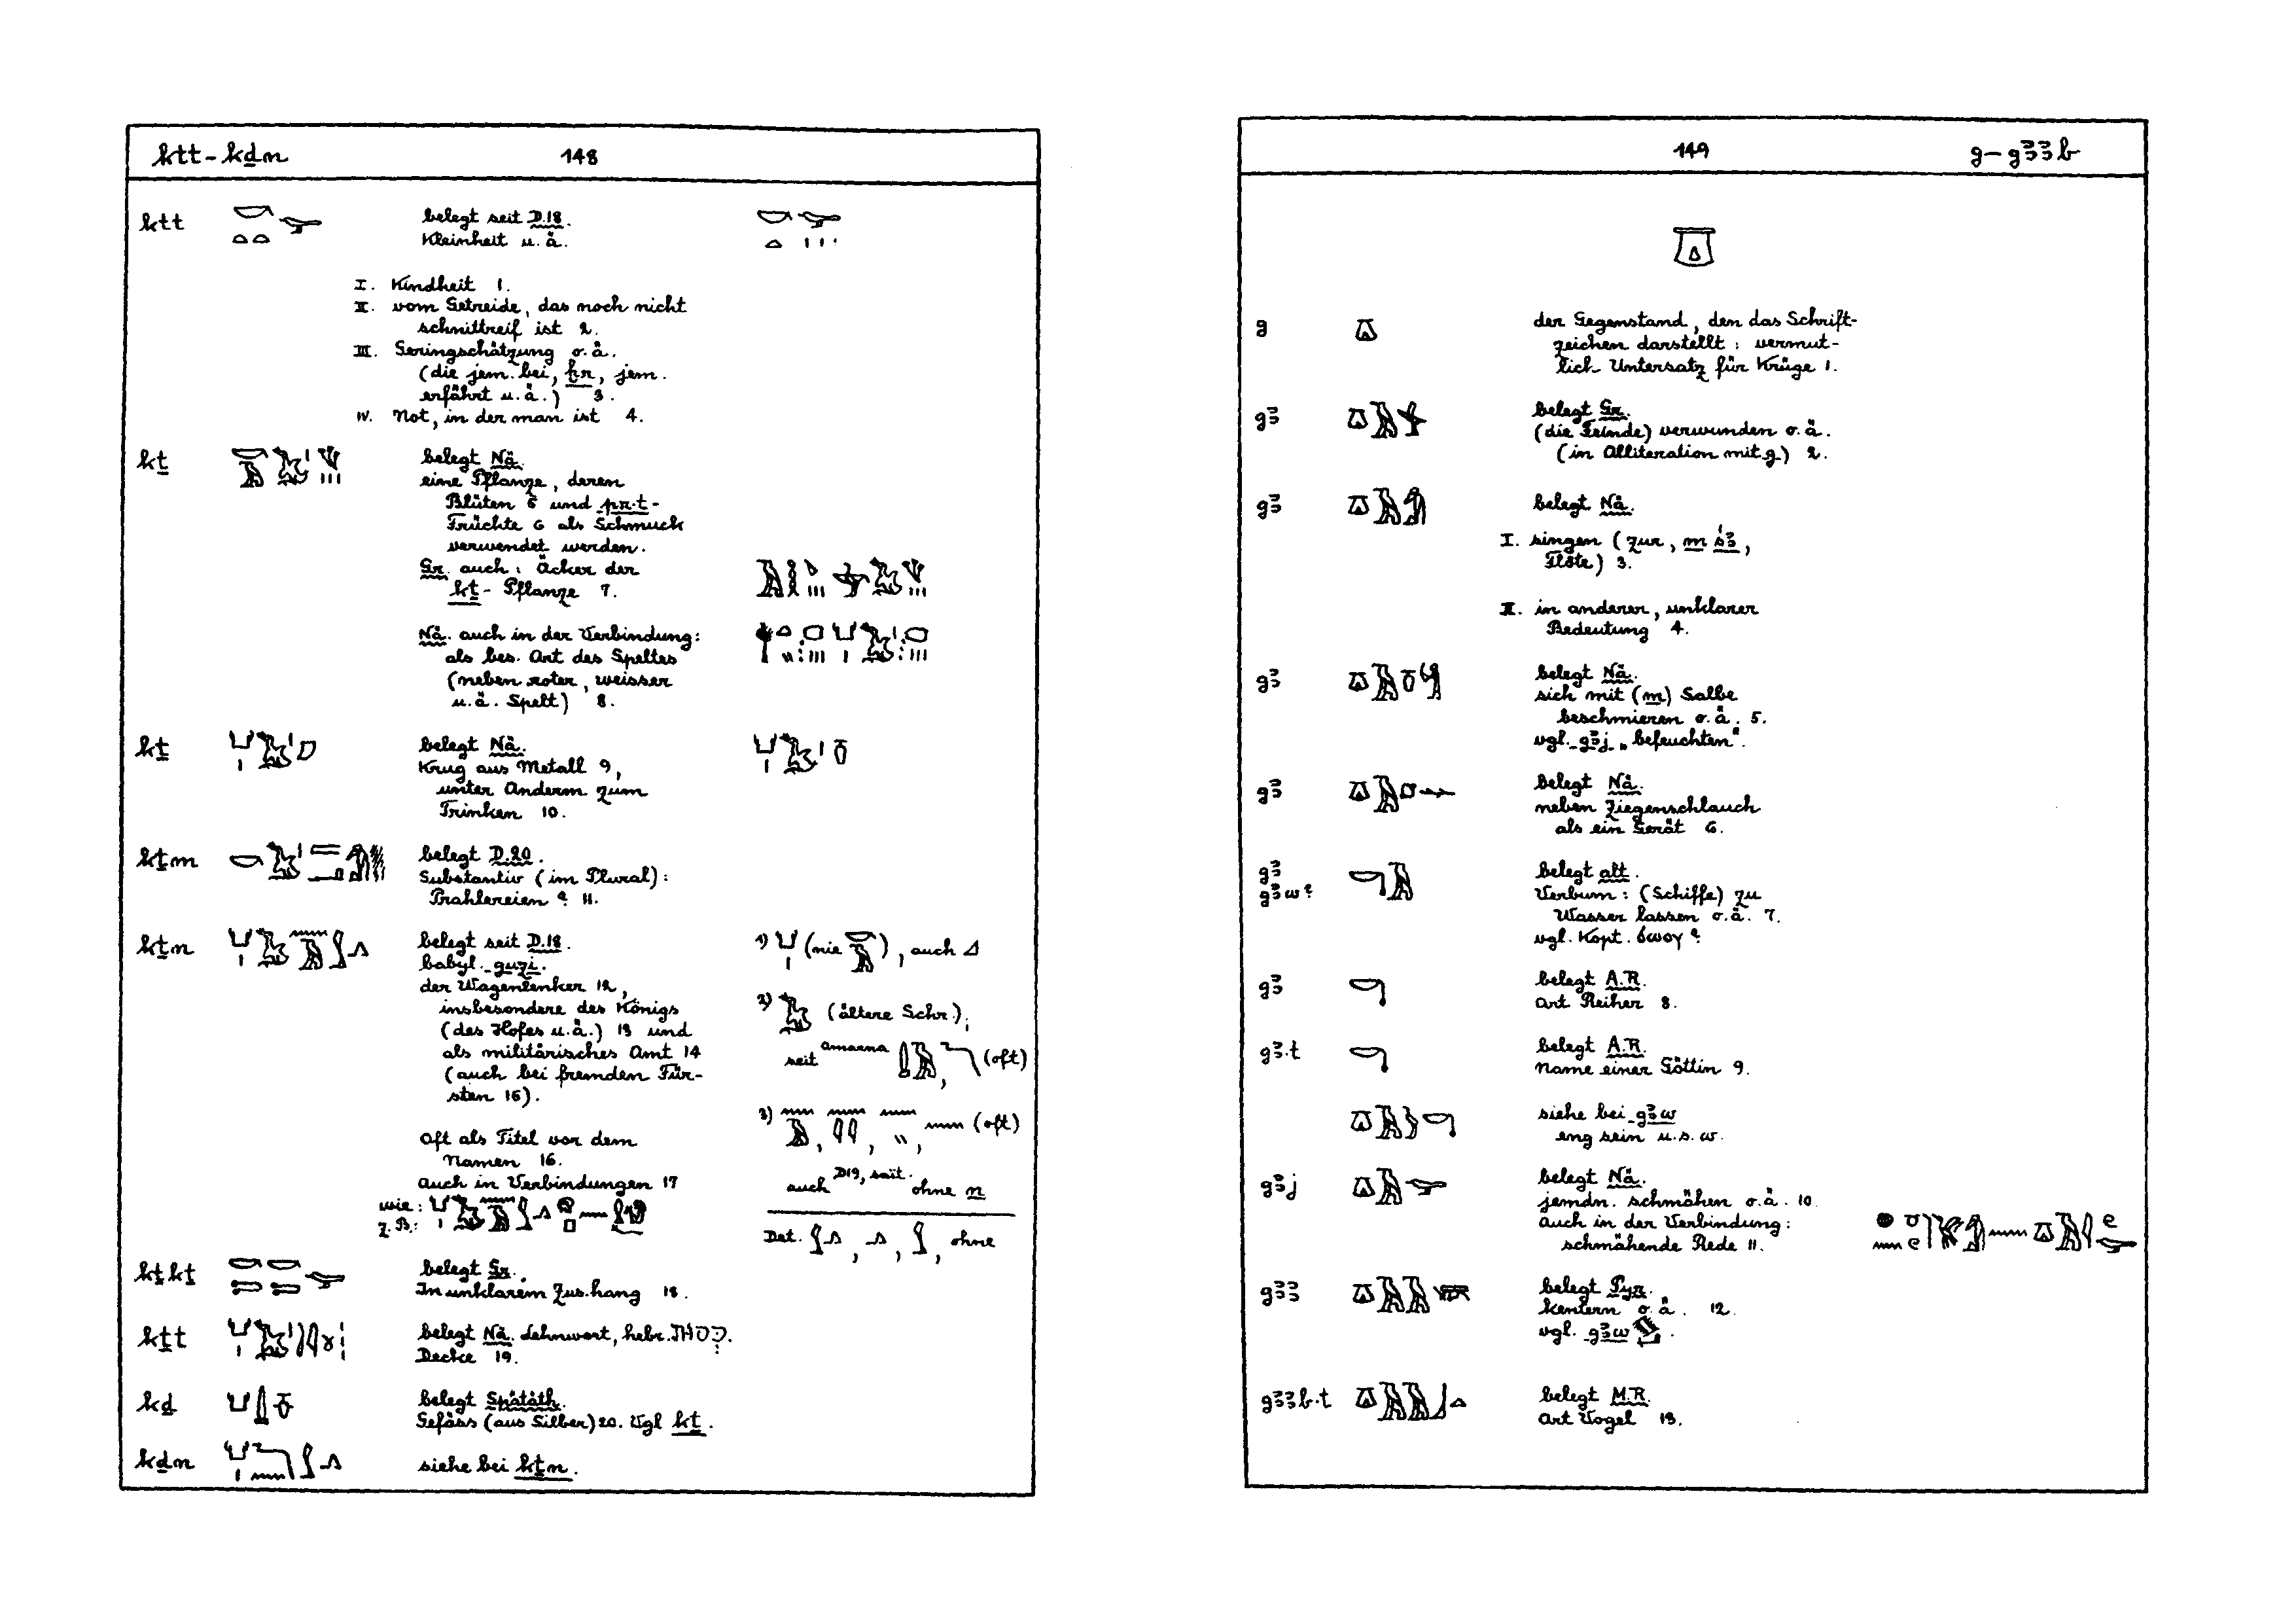 ktt - kḏn 148
ktt belegt seit D.18.
Kleinheit u.ä.
I. Kindheit 1.
II. vom Getreide, das noch nicht
schnittreif ist 2.
III. Geringschätzung o.ä.
(die jem. bei, ḫr, jem.
erfährt u.ä.) 3.
IV. Not, in der man ist 4.
kṯ belegt Nä.
eine Pflanze, deren
Blüten 5 und pr.t-
Früchte 6 als Schmuck
verwendet werden.
Gr. auch: Äcker der
kṯ-Pflanze 7.
Nä. auch in der Verbindung:
als bes. Art des Speltes
(neben roter, weisser
u.ä. Spelt) 8.
kṯ belegt Nä.
Krug aus Metall 9,
unter Anderm zum
Trinken 10.
kṯm belegt D.20.
Substantiv (im Plural):
Prahlereien ? 11.
kṯn belegt seit D.18. 1) (nie ), auch
babyl. guzi.
der Wagenlenker 12,
insbesondere des Königs 2) (ältere Schr.),
(des Hofes u.ä.) 13 und
als militärisches Amt 14 seit Amarna , (oft)
(auch bei fremden Für-
sten 15).
3) , , , (oft)
Oft als Titel vor dem
Namen 16.
Auch in Verbindungen 17 auch D19, sait. ohne n
wie:
z.B.: Det. , , , ohne
kṯkṯ belegt Gr.
In unklarem Zus.hang 18.
kṯt belegt Nä. Lehnwort, hebr.
Decke 19.
kḏ belegt Spätäth.
Gefäss (aus Silber) 20. Vgl kṯ.
kḏn siehe bei kṯn.
149 g - gꜣꜣb
g der Gegenstand, den das Schrift-
zeichen darstellt: vermut-
lich Untersatz für Krüge 1.
gꜣ belegt Gr.
(die Feinde) verwunden o.ä.
(in Alliteration mit g) 2.
gꜣ belegt Nä.
I. singen (zur, m
Flöte) 3.
II. in anderer, unklarer
Bedeutung 4.
gꜣ belegt Nä.
sich mit (m) Salbe
beschmieren o.ä. 5.
vgl. gꜣj „befeuchten".
gꜣ belegt Nä.
neben Ziegenschlauch
als ein Gerät 6.
gꜣ belegt alt.
gꜣw? Verbum: (Schiffe) zu
Wasser lassen o.ä. 7.
vgl. Kopt. ϭωογ ?
gꜣ belegt A.R.
Art Reiher 8.
gꜣ.t belegt A.R.
Name einer Göttin 9.
siehe bei gꜣw
eng sein u.s.w.
gꜣj belegt Nä.
jemdn. schmähen o.ä. 10
auch in der Verbindung:
schmähende Rede 11.
gꜣꜣ belegt Pyr.
kentern o.ä. 12.
vgl. gꜣw .
gꜣꜣb.t belegt M.R.
Art Vogel 13.